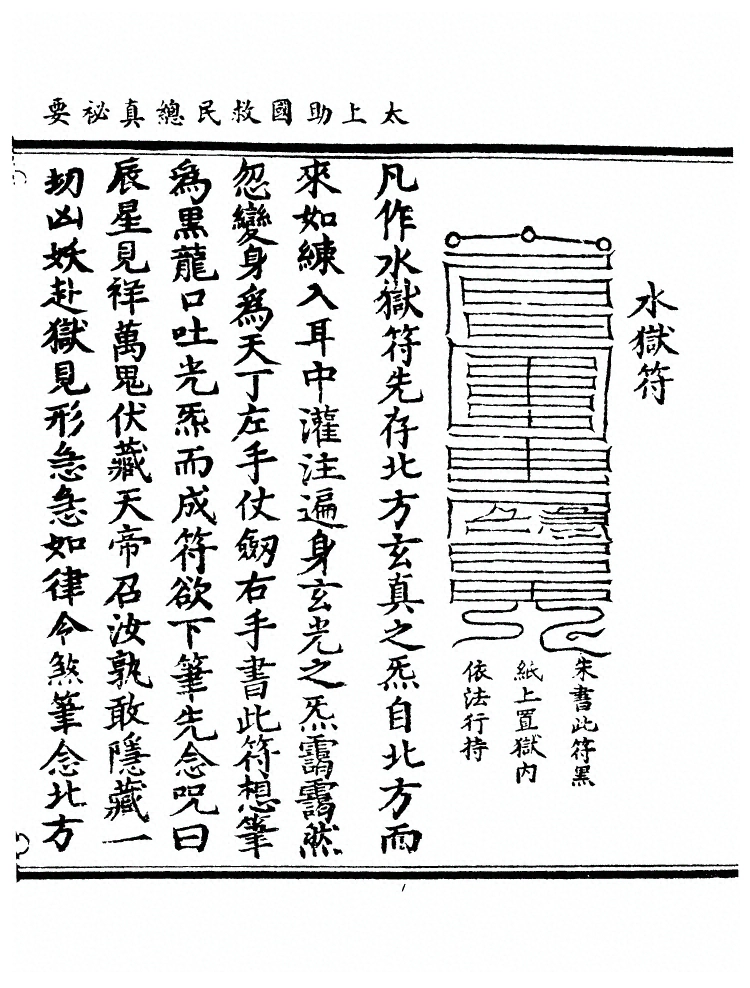 太上助國救民總真祕要
水獄符
朱書此符黑
紙上置獄內
依法行持
凡作水獄符先存北方玄真之炁自北方而
來如練入耳中灌注遍身玄光之炁靄靄然
忽變身爲天丁左手仗劒右手書此符想筆
爲黑龍口吐光炁而成符欲下筆先念咒曰
辰星見祥萬鬼伏藏天帝召汝孰敢隱藏一
切凶妖赴獄見形急急如律令煞筆念北方